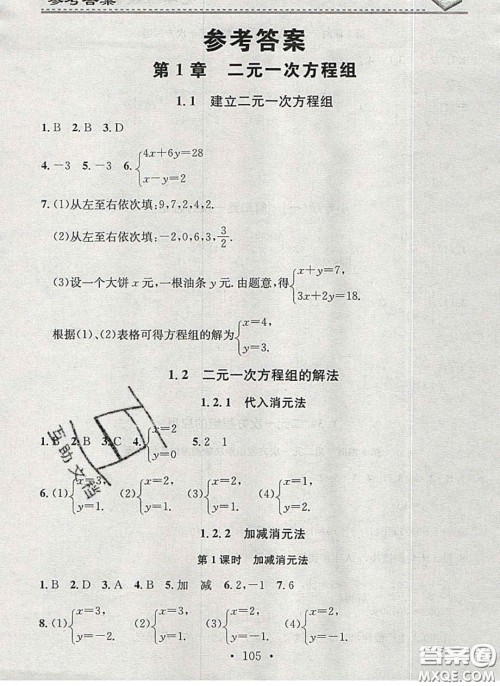 参考答案
参考答案
第1章 二元一次方程组
1.1 建立二元一次方程组
1. B 2. B 3. D
4. -3 5. -3 6. {4x+6y=28 x-y=2
7. (1)从左至右依次填:9,7,2,4,2.
(2)从左至右依次填:-2,0,6,3,3/2.
(3)设一个大饼x元,一根油条y元.由题意,得{x+y=7, 3x+2y=18.
根据(1)、(2)表格可得方程组的解为{x=4, y=3.
1.2 二元一次方程组的解法
1.2.1 代入消元法
1. B 2. B 3. C 4. {x=2 y=0 5. 2 1
6. (1){x=3, y=1. (2){x=1, y=1. (3){x=2, y=1. (4){x=2, y=1.
1.2.2 加减消元法
第1课时 加减消元法
1. B 2. D 3. A 4. B 5. 加 减 6. 2,-1 7. 6
8. (1){x=3, y=-2. (2){x=3, y=1. (3){x=2, y=-1. (4){x=1, y=1.
· 105 ·
互助文档
答案圈
MXQE.COM